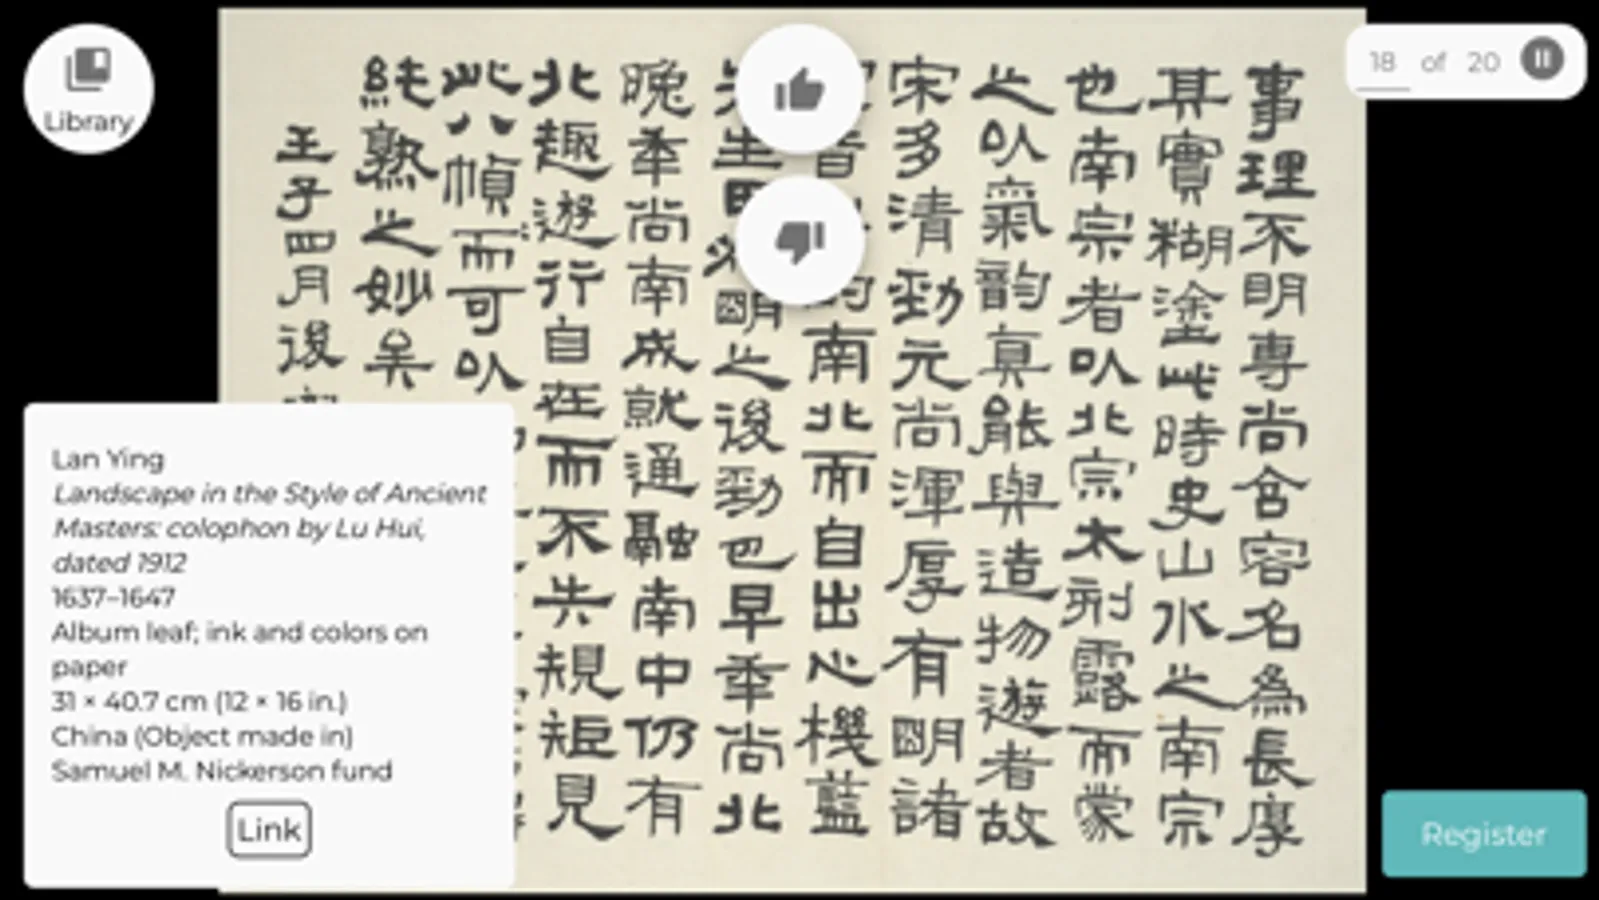 Library
18 of 20
事理不明專尚含容名為長厚
其實糊塗此時史山水之南宗
也南宗者以北宗太刻露而蒙
之以氣韵真能與造物遊者故
宋多清勁元尚渾厚有明諸
南北而自出心機藍
明之後勁也早年尚北
晚年尚南成就通融南中仍有
北趣遊行自在而不失規矩見
此八幀而可以
純熟之妙矣
壬子四月後
Lan Ying
Landscape in the Style of Ancient
Masters: colophon by Lu Hui,
dated 1912
1637–1647
Album leaf; ink and colors on
paper
31 × 40.7 cm (12 × 16 in.)
China (Object made in)
Samuel M. Nickerson fund
Link
Register